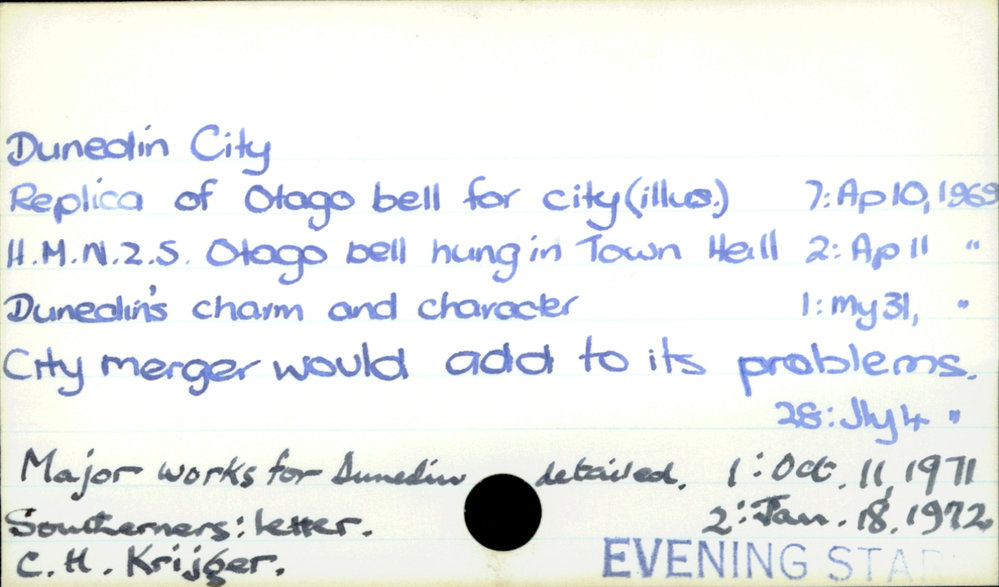 Dunedin City
Replica of Otago bell for city (illus.) 7: Ap 10, 1969
H.M.N.Z.S. Otago bell hung in Town Hall 2: Ap 11 "
Dunedin's charm and character 1: My 31, "
City merger would add to its problems.
28: Jly 4 "
Major works for Dunedin detailed. 1: Oct. 11, 1971
Southerners: letter. 2: Jan. 18. 1972.
C. H. Krijger.
EVENING STAR